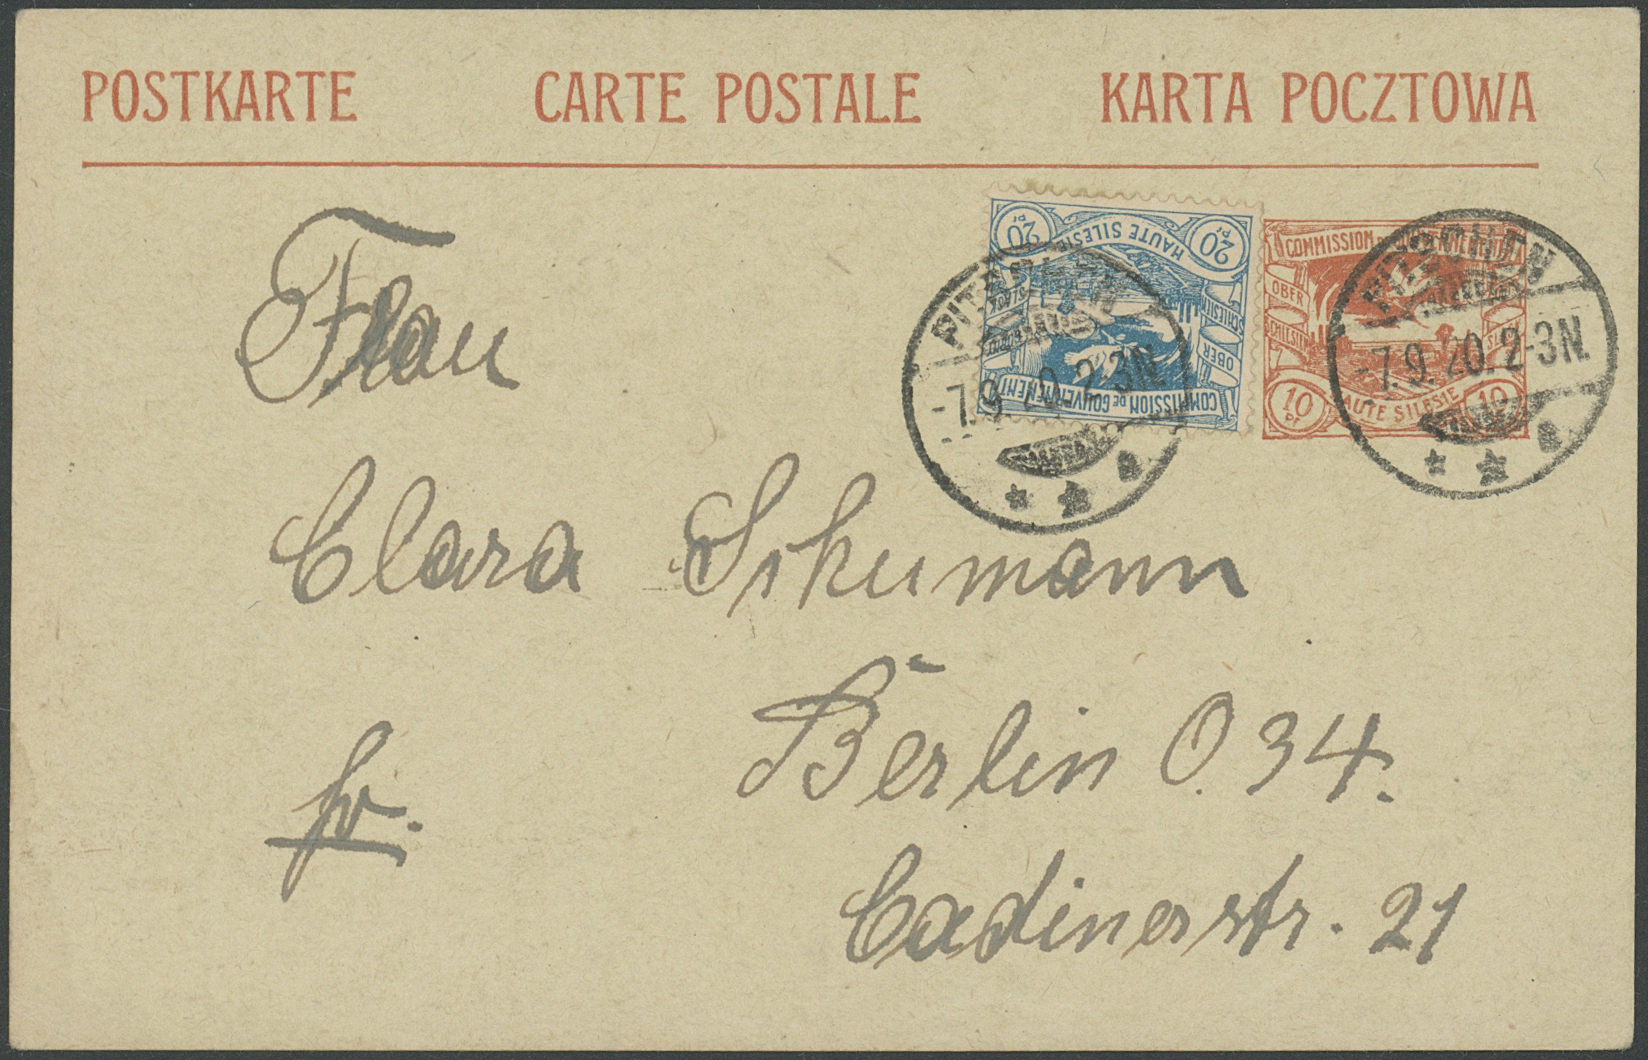 POSTKARTE CARTE POSTALE KARTA POCZTOWA
20 Pf HAUTE SILESIE 20 Pf
OBER SCHLESIEN
COMMISSION DE GOUVERNEMENT
COMMISSION DE GOUVERNEMENT
OBER
SCHLESIEN
10 Pf HAUTE SILESIE 10
PITSCHEN
-7.9.20. 2-3N.
PITSCHEN
-7.9.20. 2-3N.
Frau
Clara Schumann
Berlin O. 34.
fr.
Cadinerstr. 21